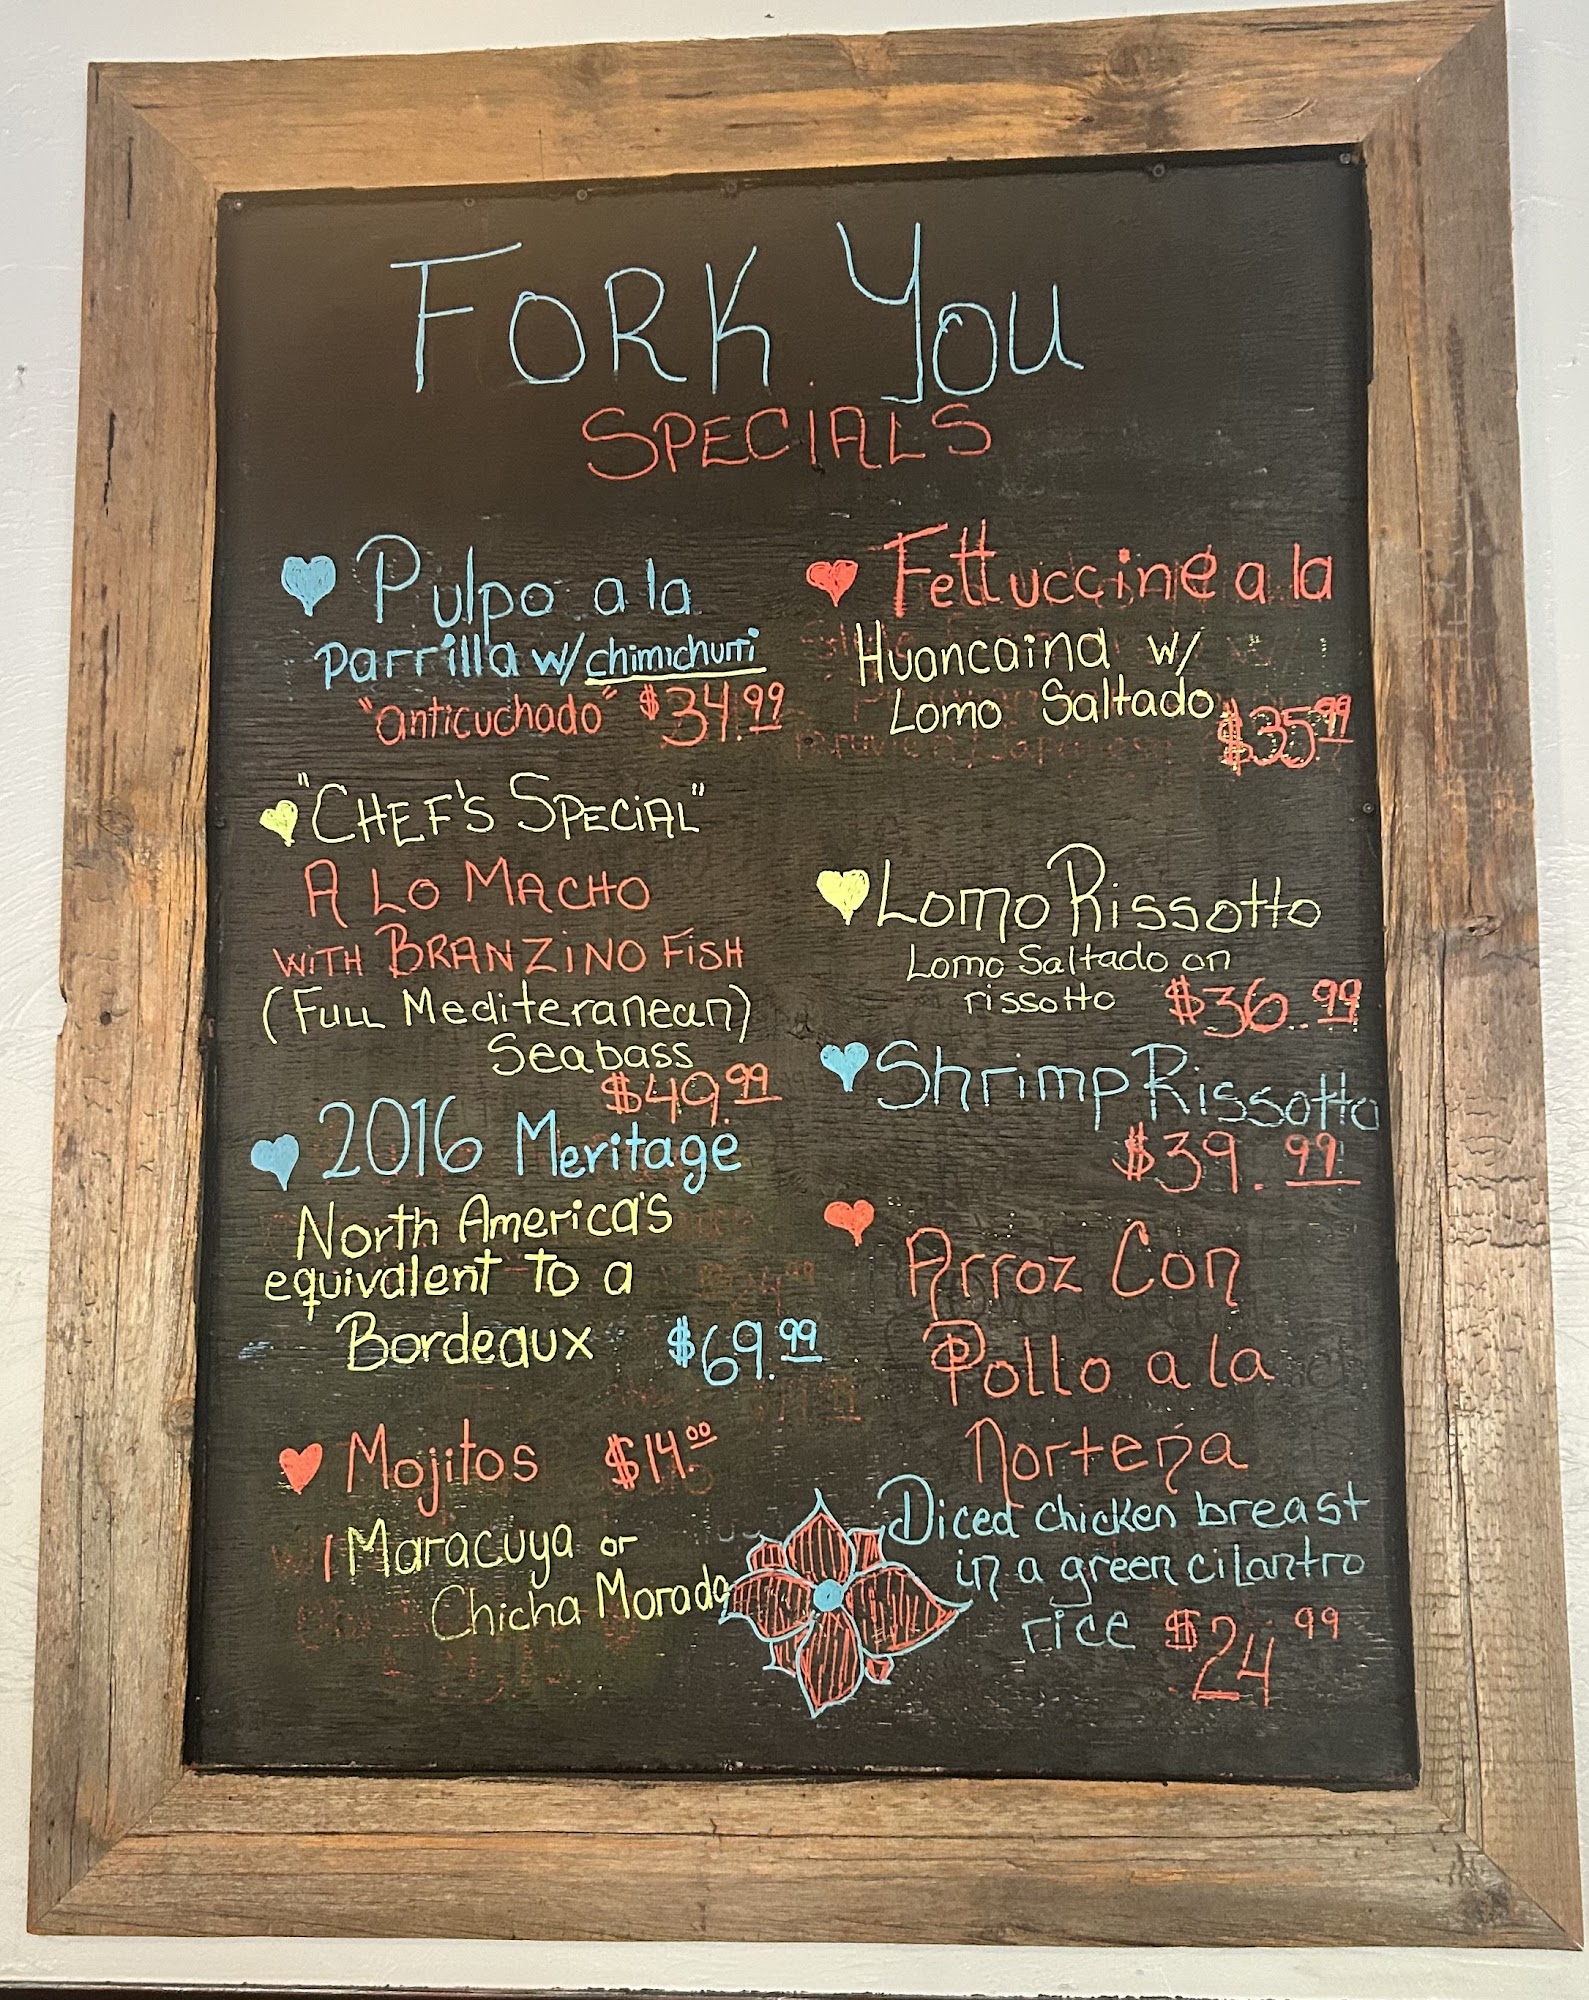 FORK YOU
SPECIALS
Pulpo a la
parrilla w/ chimichurri
"anticuchado" $34.99
"CHEF'S SPECIAL"
A LO MACHO
WITH BRANZINO FISH
(FULL Mediteranean)
Seabass
$49.99
2016 Meritage
North America's
equivalent to a
Bordeaux $69.99
Mojitos $14.00
w/ Maracuya or
Chicha Morada
Fettuccine a la
Huancaina w/
Lomo Saltado
$35.99
Lomo Rissotto
Lomo Saltado on
rissotto $36.99
Shrimp Rissotto
$39.99
Arroz Con
Pollo a la
Norteña
Diced chicken breast
in a green cilantro
rice $24.99